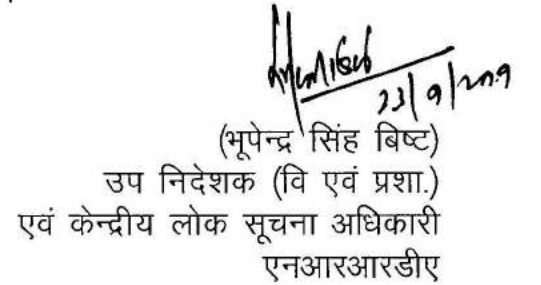 (भूपेन्द्र सिंह बिष्ट)
उप निदेशक (वि एवं प्रशा.)
एवं केन्द्रीय लोक सूचना अधिकारी
एनआरआरडीए